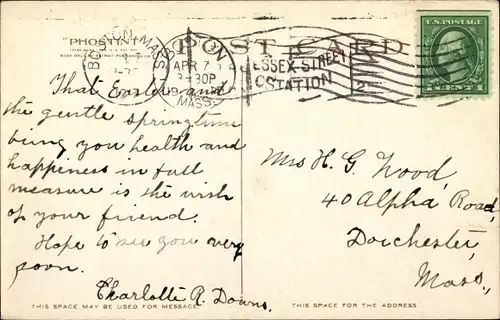 "PHOSTINT"
POST CARD
BOSTON, MASS.
APR 7
3-30P
MASS.
ESSEX STREET
STATION
2
U.S. POSTAGE
CENT
That Easter and
the gentle springtime
bring you health and
happiness in full
measure is the wish
of your friend.
Hope to see you very
soon.
Charlotte R. Downs.
Mrs H. G. Wood,
40 Alpha Road,
Dorchester,
Mass.,
THIS SPACE MAY BE USED FOR MESSAGE.
THIS SPACE FOR THE ADDRESS.